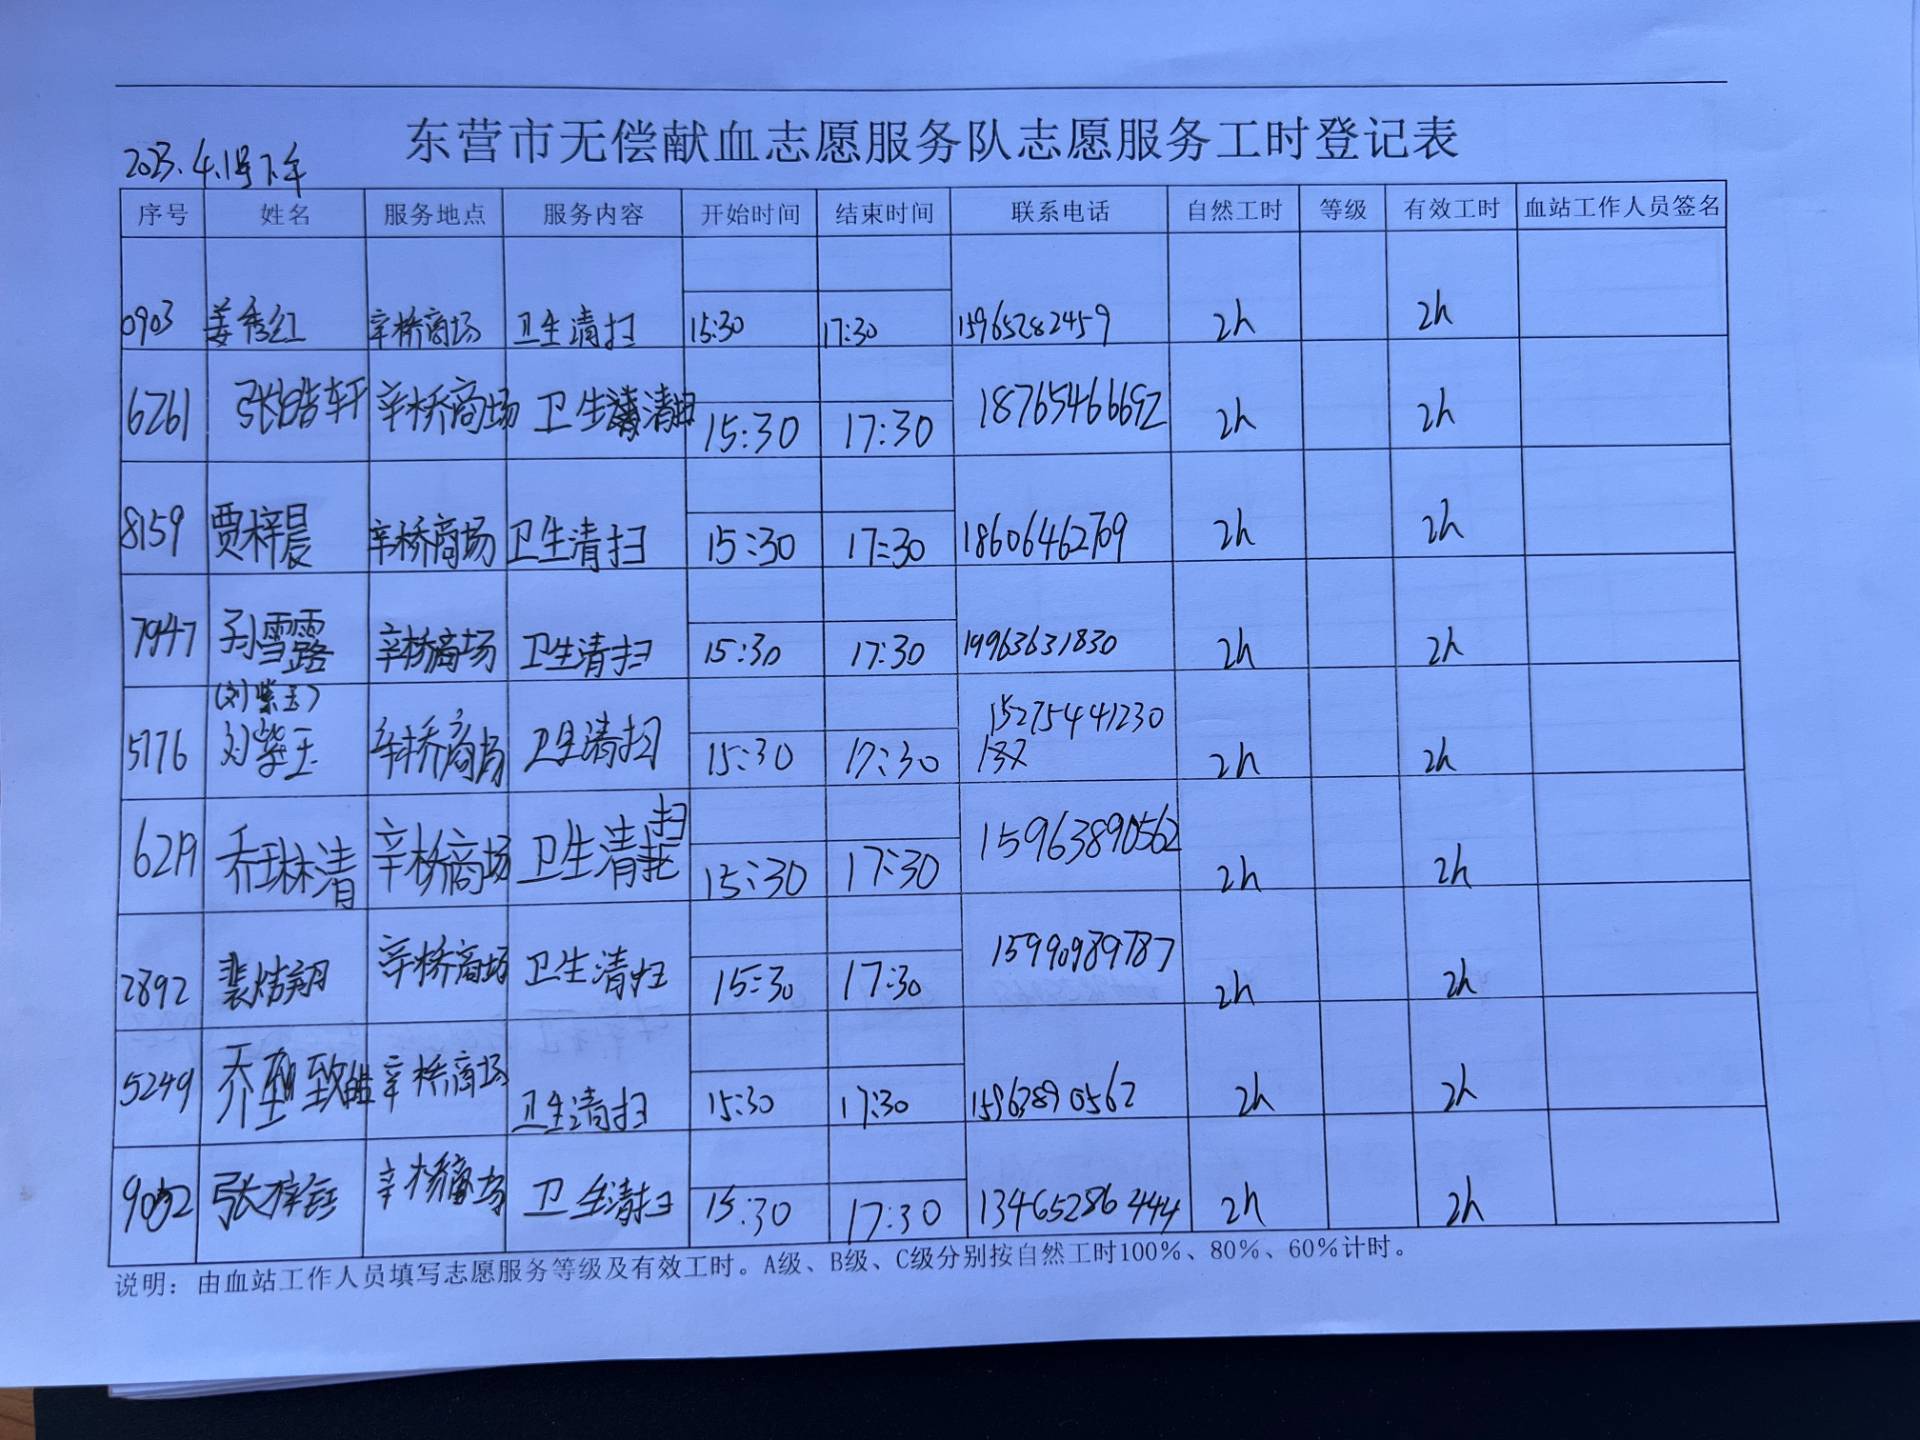 东营市无偿献血志愿服务队志愿服务工时登记表
2023.4.1号下午
序号 姓名 服务地点 服务内容 开始时间 结束时间 联系电话 自然工时 等级 有效工时 血站工作人员签名
0903 姜秀红 辛桥商场 卫生清扫 15:30 17:30 15965282459 2h 2h
6261 张皓轩 辛桥商场 卫生清扫 15:30 17:30 18765466692 2h 2h
8159 贾梓晨 辛桥商场 卫生清扫 15:30 17:30 18606462709 2h 2h
7947 孙雪露 辛桥商场 卫生清扫 15:30 17:30 19963631830 2h 2h
(刘紫玉)
5176 刘紫玉 辛桥商场 卫生清扫 15:30 17:30 15275441230 2h 2h
6219 乔琳清 辛桥商场 卫生清扫 15:30 17:30 15963890562 2h 2h
2892 裴炜翔 辛桥商场 卫生清扫 15:30 17:30 15990989787 2h 2h
5249 乔 致皓 辛桥商场 卫生清扫 15:30 17:30 15963890562 2h 2h
9032 张梓钰 辛桥商场 卫生清扫 15:30 17:30 13465286444 2h 2h
说明：由血站工作人员填写志愿服务等级及有效工时。A级、B级、C级分别按自然工时100%、80%、60%计时。